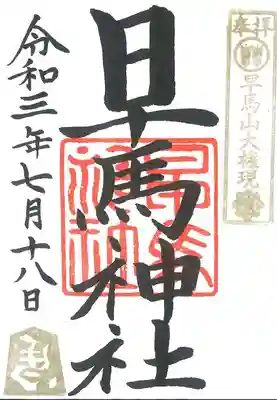 奉拝
早馬山大権現
早馬神社
令和三年七月十八日